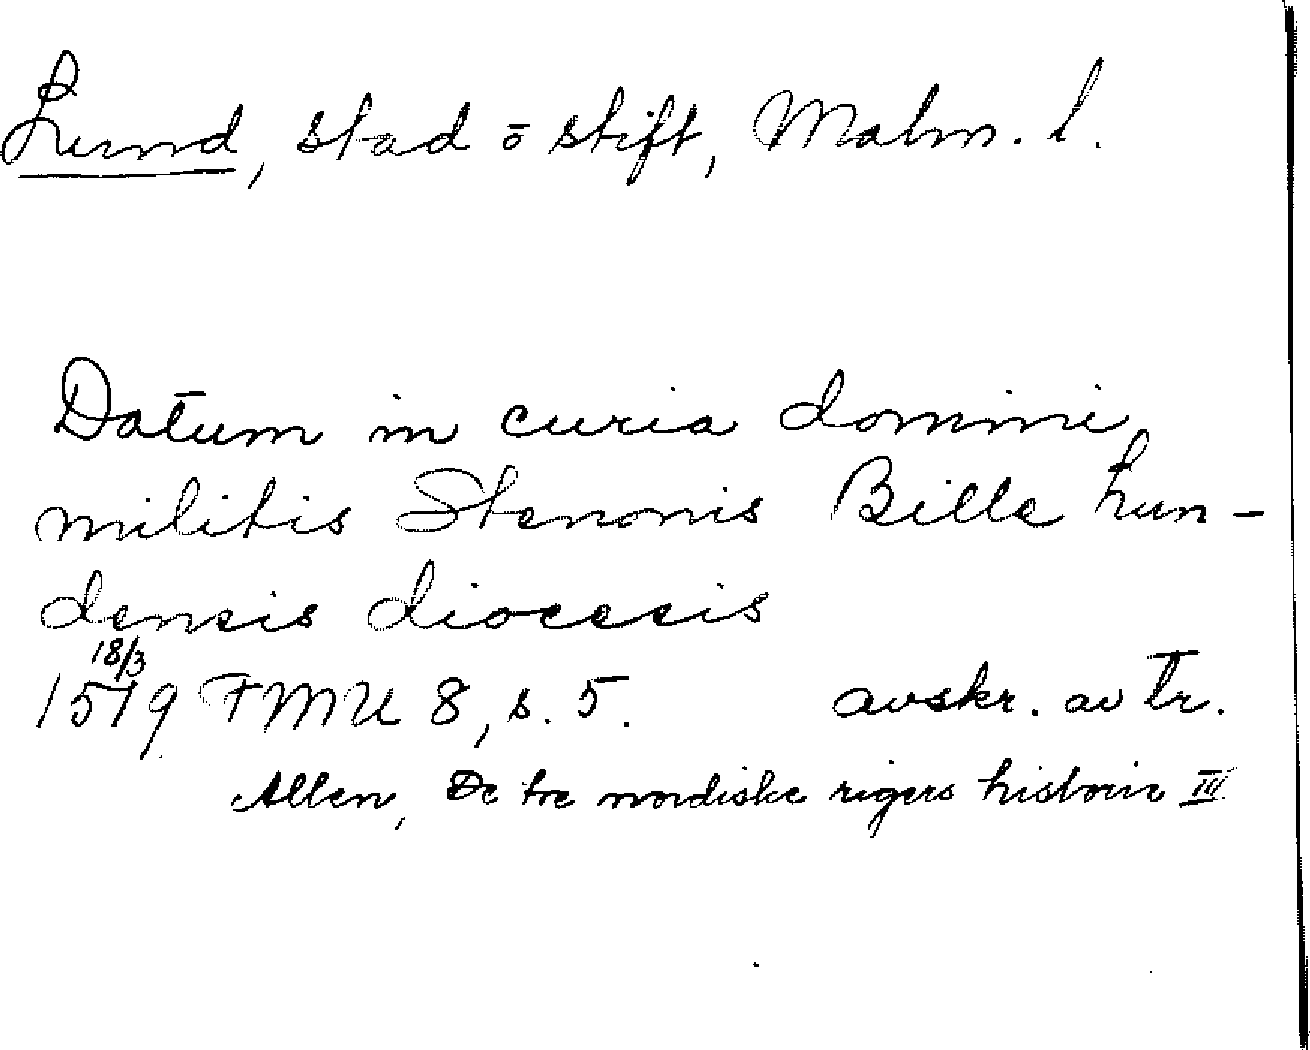 Lund, stad o stift, Malm. l.
Datum in curia domini
militis Stenonis Bille Lun-
densis diocesis
18/3
1519 FMU 8, s. 5. avskr. av tr.
Allen, De tre nordiske rigers historie III